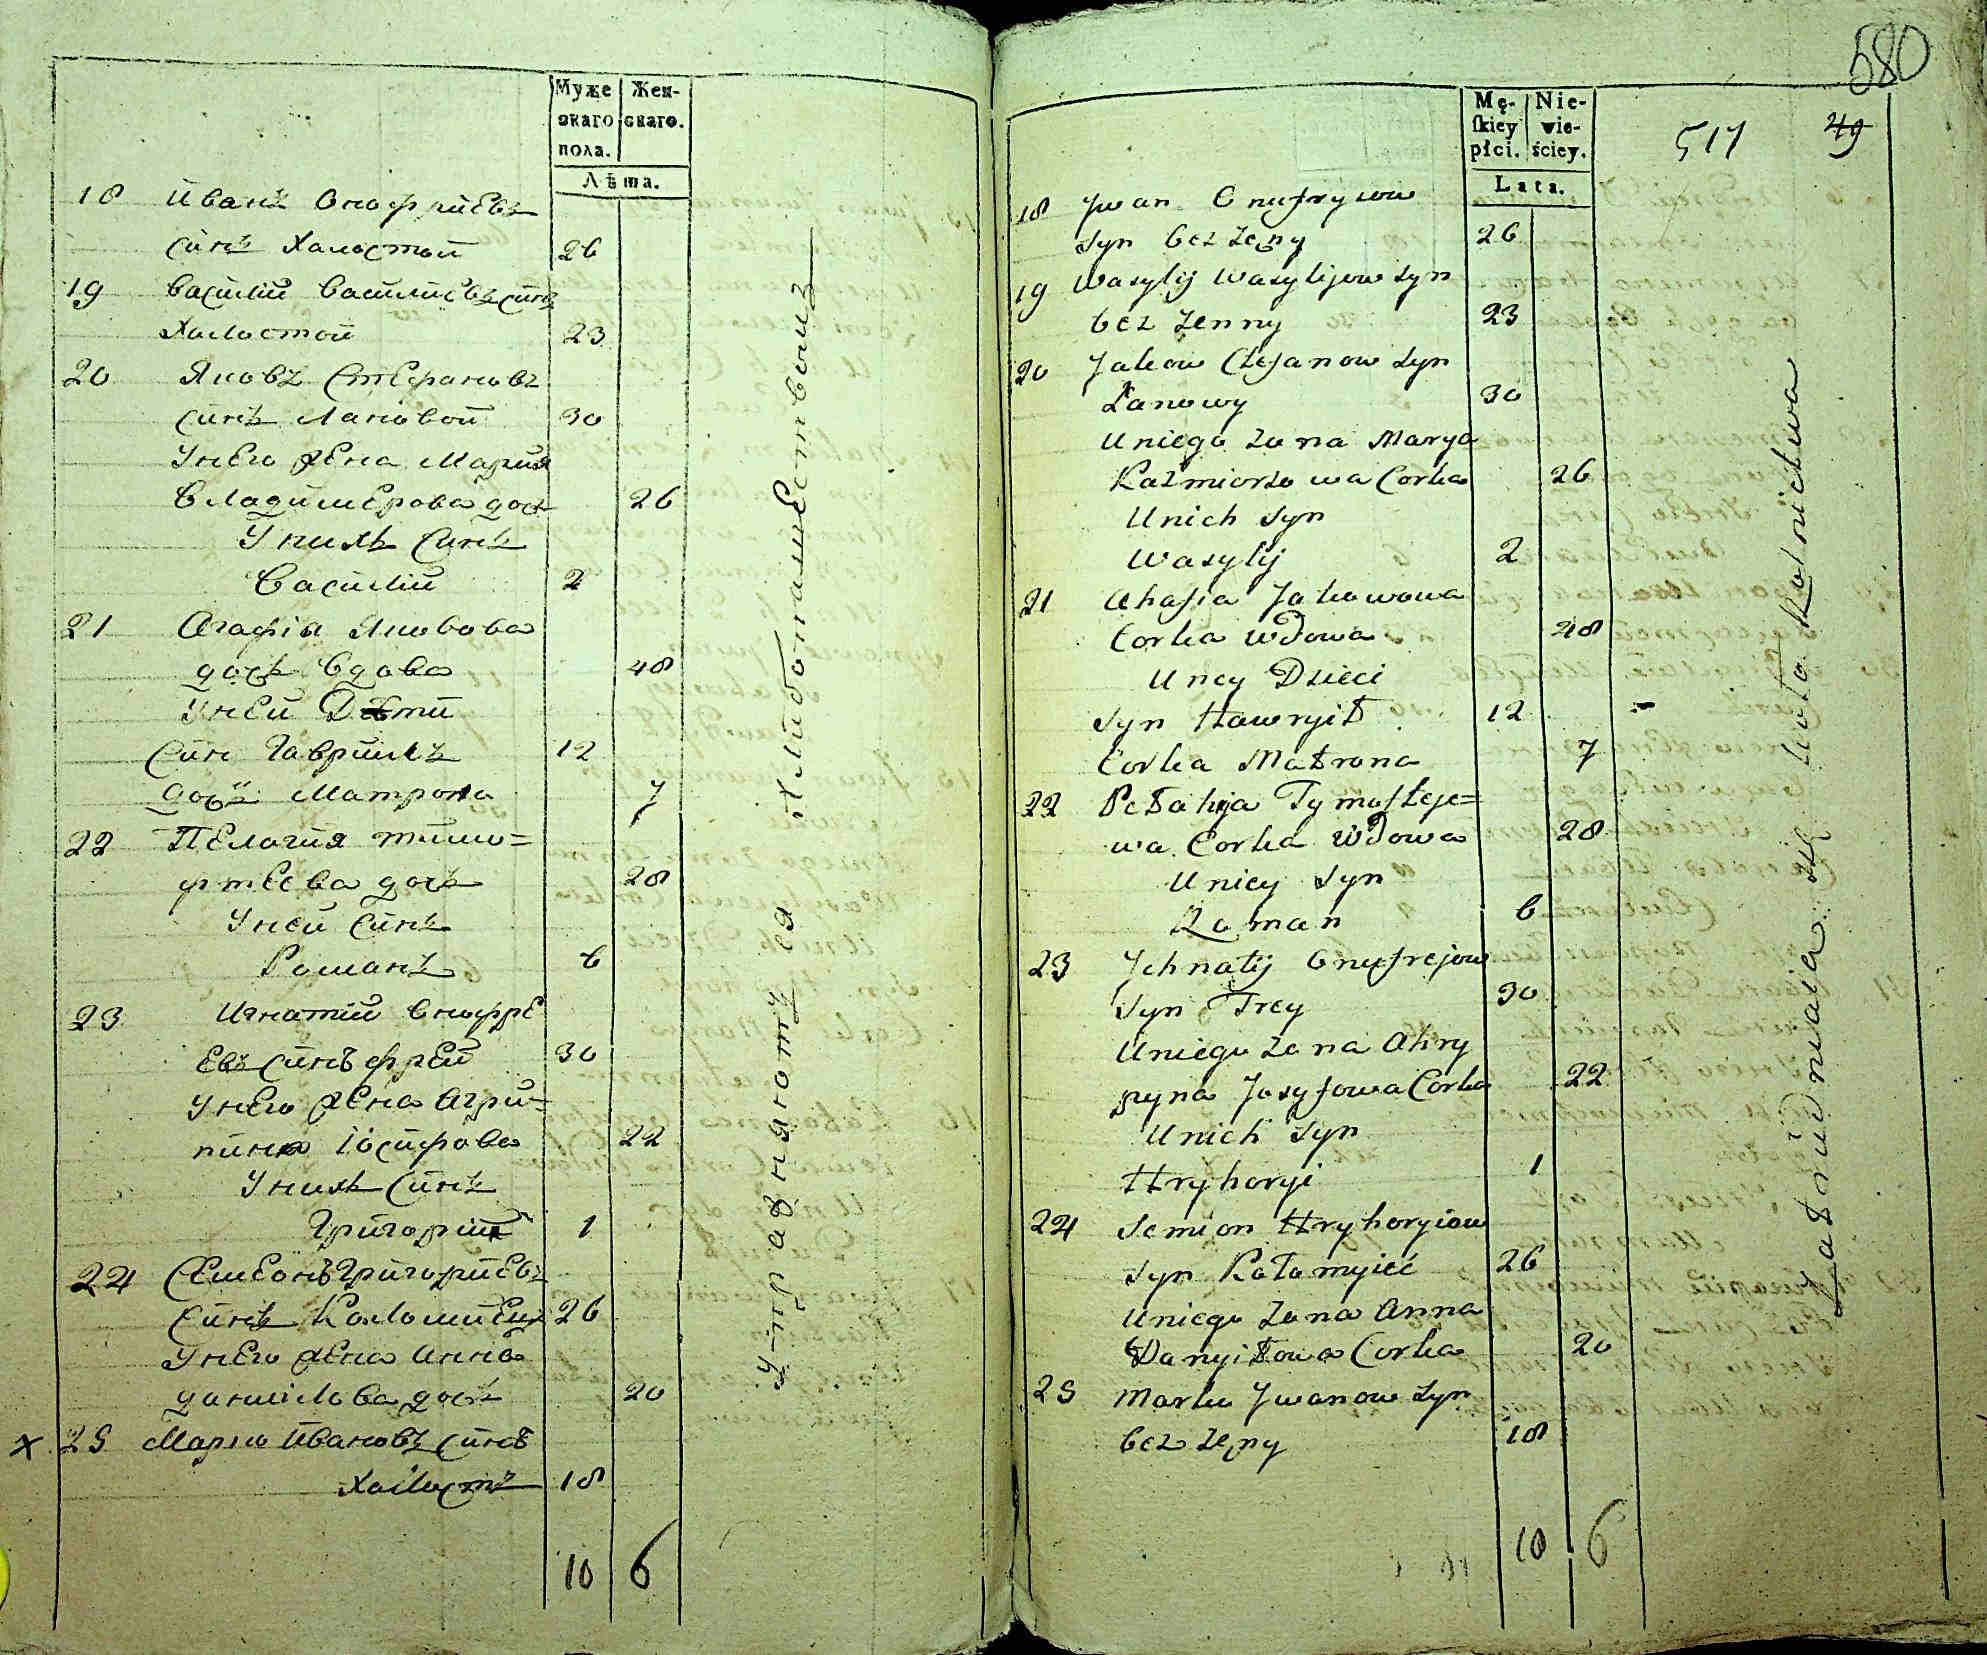 Муже
скаго
пола.
Жен-
скаго.
Лѣта.
18 Иванъ Онофриевъ
синъ Халостой 26
19 Василий Василиевъ синъ
Халостой 23
20 Яковъ Стефановъ
синъ Лановой 30
У него жена Мария
Владимерова дочь 26
У нихъ синъ
Василий 2
21 Агафія Яковова
дочь вдова 48
У ней Дѣти
Синъ Гаврилъ 12
дочь Матрона 7
22 Пелагия тимо=
фтеева дочь 28
У ней синъ
Романъ 6
23 Игнатий Онофре
евъ синъ фрей 30
У него жена Агри=
пина Іосифова 22
У нихъ синъ
Григорий 1
24 Семеонъ Григориевъ
синъ Коломиецъ 26
У него жена Анна
данилова дочь 20
x 25 Марко Ивановъ синъ
Халостъ 18
10 6
Упражняются Хлибопашествомъ
580
Mę-
skiey
płci.
Nie-
wie-
ściey.
Lata.
517 49
18 Jwan Onufryiow
syn bez zeny 26
19 Wasylij Wasylijow syn
bez zenny 23
20 Jakow Stefanow syn
Łanowy 30
Uniego zona Marya
Kazmiorzowa Corka 26
Unich syn
Wasylij 2
21 Ahafia Jakowowa
Corka wdowa 48
Uney Dzieci
syn Hawryił 12
Corka Matrona 7
22 Pełahija Tymofteje=
wa Corka wdowa 28
Unicy syn
Roman 6
23 Jhnatij Onufrejow
syn Frey 30
Uniego zona Ahry
pyna Josyfowa Corka 22
Unich syn
Hryhoryi 1
24 Semion Hryhoryiow
syn Kołomyieć 26
Uniego zona Anna
Danyiłowa Corka 20
25 Marko Jwanow syn
bez zeny 18
10 6
Zatrudniaia się koło Rolnictwa